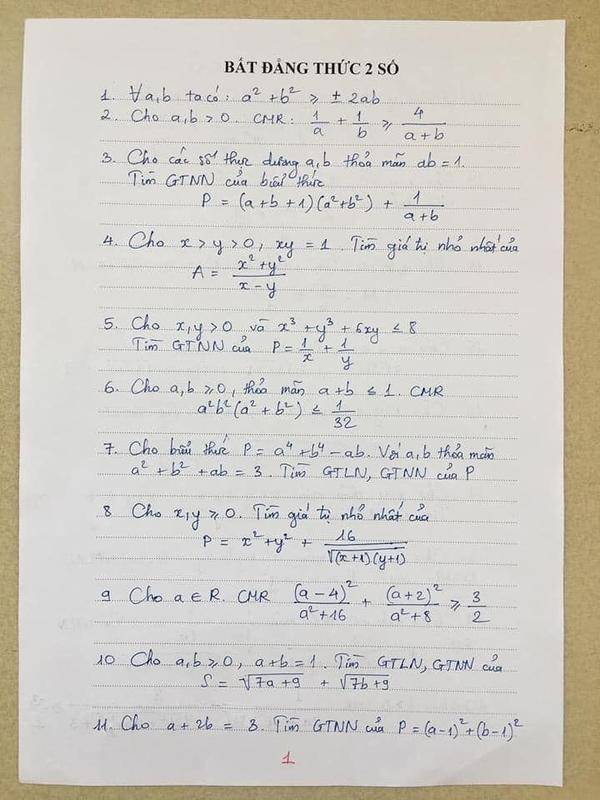 BẤT ĐẲNG THỨC 2 SỐ
1. ∀a,b ta có: a² + b² ≥ ± 2ab
2. Cho a,b > 0. CMR: 1/a + 1/b ≥ 4/(a+b)
3. Cho các số thực dương a,b thỏa mãn ab = 1.
Tìm GTNN của biểu thức
P = (a+b+1)(a²+b²) + 1/(a+b)
4. Cho x > y > 0, xy = 1. Tìm giá trị nhỏ nhất của
A = (x²+y²)/(x-y)
5. Cho x,y > 0 và x³ + y³ + 6xy ≤ 8
Tìm GTNN của P = 1/x + 1/y
6. Cho a,b ≥ 0, thỏa mãn a+b ≤ 1. CMR
a²b²(a²+b²) ≤ 1/32
7. Cho biểu thức P = a⁴ + b⁴ - ab. Với a,b thỏa mãn
a² + b² + ab = 3. Tìm GTLN, GTNN của P
8 Cho x,y ≥ 0. Tìm giá trị nhỏ nhất của
P = x² + y² + 16/√((x+1)(y+1))
9 Cho a ∈ R. CMR (a-4)²/(a²+16) + (a+2)²/(a²+8) ≥ 3/2
10 Cho a,b ≥ 0, a+b = 1. Tìm GTLN, GTNN của
S = √(7a+9) + √(7b+9)
11. Cho a + 2b = 3. Tìm GTNN của P = (a-1)² + (b-1)²
1